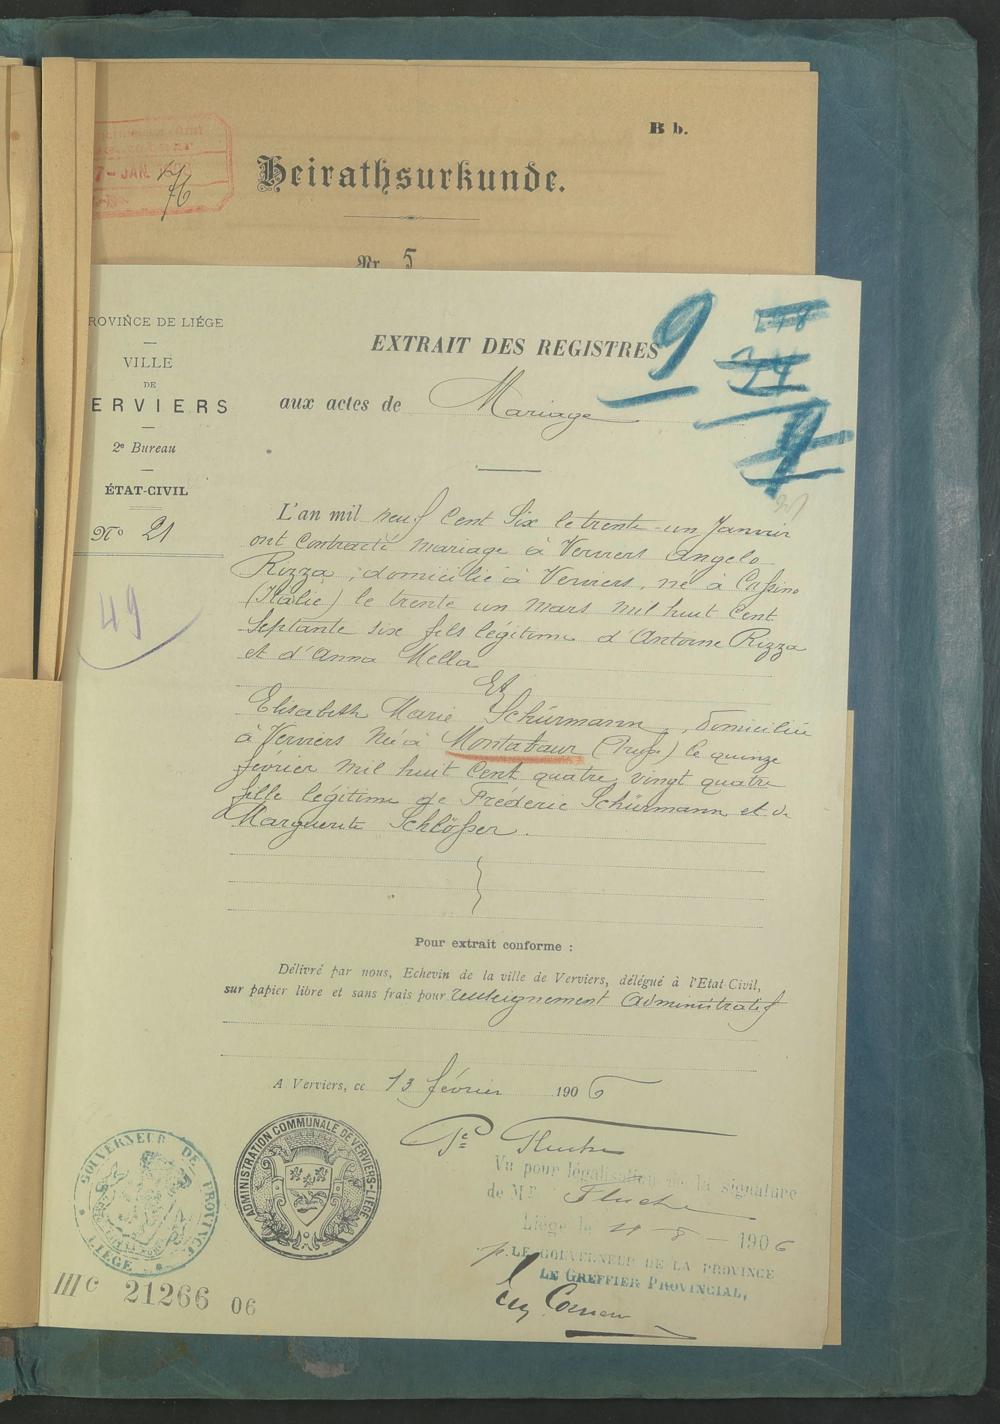 B b.
7 - JAN.
76
Heirathsurkunde.
Nr. 5
PROVINCE DE LIÉGE
VILLE
DE
VERVIERS
2e Bureau
ÉTAT-CIVIL
No 21
49
EXTRAIT DES REGISTRES
9
aux actes de Mariage
L'an mil neuf Cent Six le trente-un Janvier
ont Contracté mariage à Verviers Angelo
Rizza, domicilié à Verviers, né à Cassino
(Italie) le trente un mars mil huit Cent
Septante six fils légitime d'Antoine Rizza
et d'Anna Mella
Et
Elisabeth Marie Schürmann, domiciliée
à Verviers née à Montabaur (Prusse) le quinze
février mil huit Cent quatre vingt quatre
fille légitime de Fréderic Schürmann et de
Marguerite Schlösser.
Pour extrait conforme :
Délivré par nous, Echevin de la ville de Verviers, délégué à l'Etat-Civil,
sur papier libre et sans frais pour renseignement Administratif
A Verviers, ce 13 février 1906
Vu pour légalisation de la signature
de Mr
Liége le 1906
p. LE GOUVERNEUR DE LA PROVINCE
LE GREFFIER PROVINCIAL,
GOUVERNEUR DE PROVINCE
LIÉGE
ADMINISTRATION COMMUNALE DE VERVIERS-LIÉGE
III C 21266 06